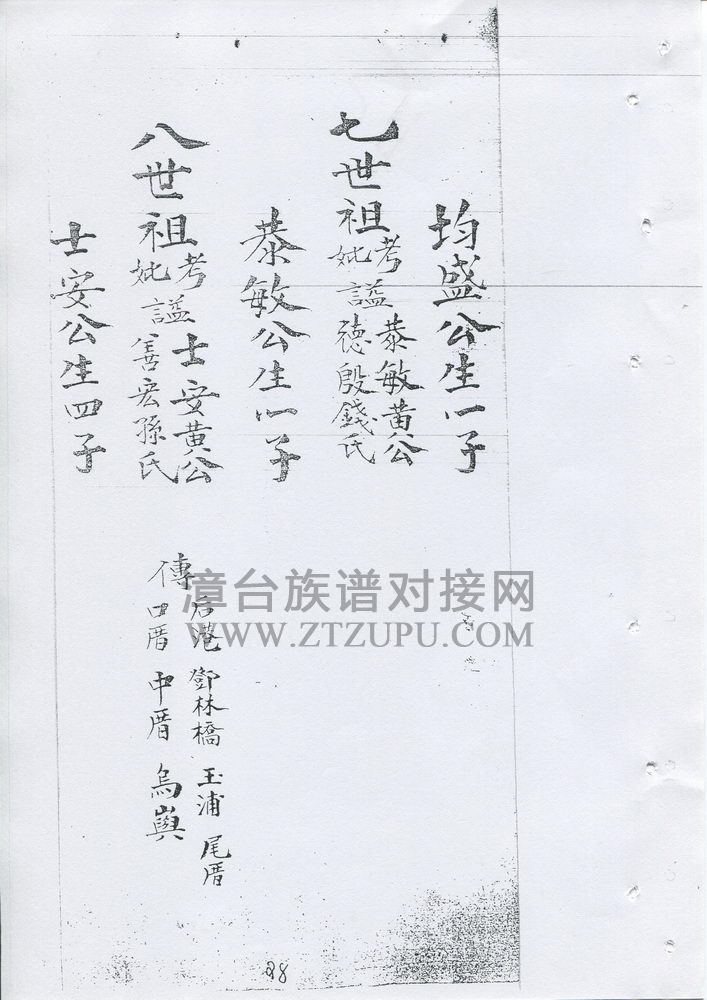 均盛公生一子
七世祖
考
妣
諡
恭敏黃公
德殷錢氏
恭敏公生一子
八世祖
考
妣
諡
士安黃公
善宏孫氏
士安公生四子
傳
后港 鄧林橋 玉浦 尾厝
口厝 中厝 烏嶼
漳台族谱对接网
WWW.ZTZUPU.COM
28